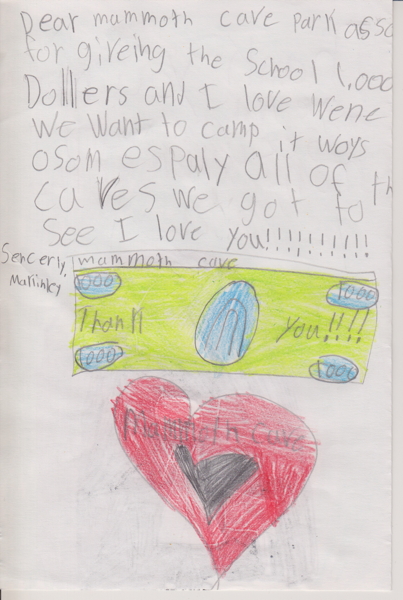 Dear mammoth cave park asso
for giveing the School 1,000
Dolllers and I love wene
We Want to camp it woys
osom espaly all of th
caves we got to
See I love you!!!!!!!!!!
Sencerly,
mammoth cave
1000 1000
Thank you!!!!
1000 1000
Mammoth cave